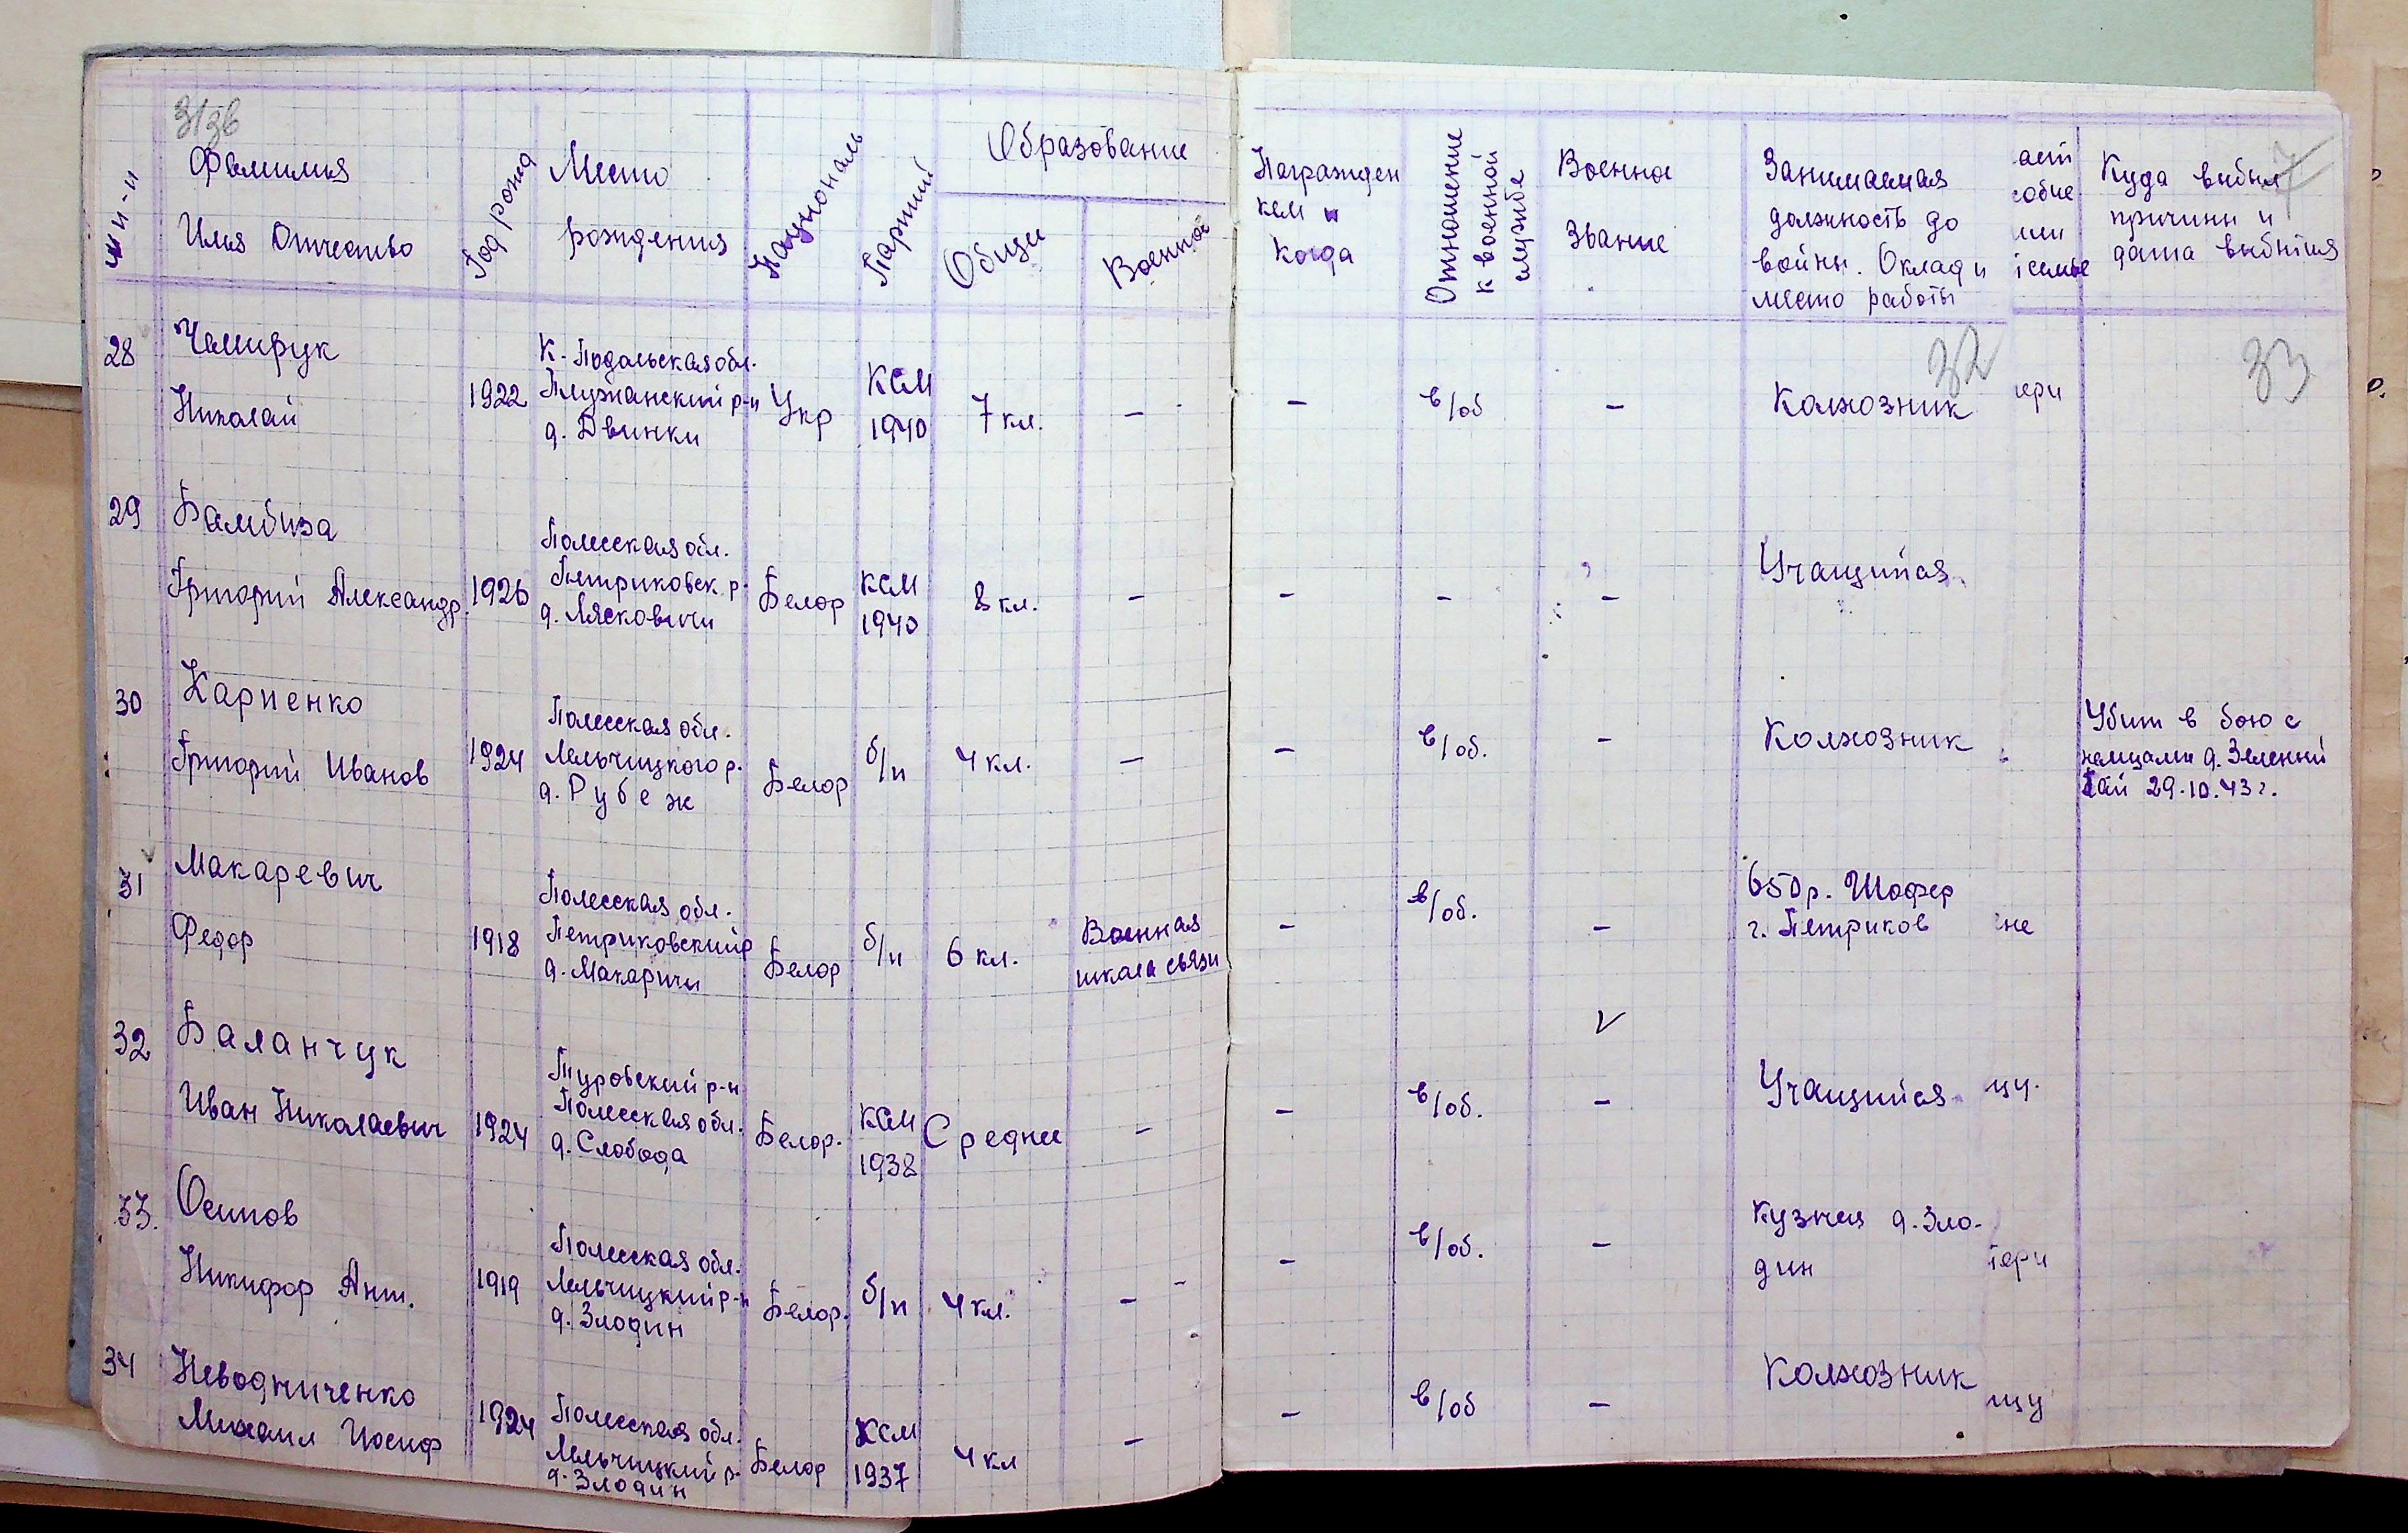 Фамилия
Имя Отчество
Год рожд
Место
рождения
Националь
Партий
Образование
Общее
Военное
Награжден
кем и
когда
Отношение
к военной
службе
Военное
Звание
Занимаемая
должность до
войны. Оклад и
место работы
Куда выбыл
причины и
дата выбытия
32
33
28
Чемирук
Николай
1922
К-Подольская обл.
Плужанский р-н
д. Двинки
Укр
КСМ
1940
7 кл.
—
—
в/об
—
Колхозник
ери
29
Бамбиза
Григорий Александр.
1926
Полесская обл.
Петриковск. р.
д. Лясковичи
Белор
КСМ
1940
8 кл.
—
—
—
—
Учащийся.
30
Карпенко
Григорий Иванов
1924
Полесская обл.
Лельчицкого р.
д. Рубеж
Белор
б/п
4 кл.
—
—
в/об.
—
Колхозник
Убит в бою с
немцами д. Зеленый
Гай 29.10.43 г.
31
Макаревич
Федор
1918
Полесская обл.
Петриковский р
д. Макаричи
Белор
б/п
6 кл.
Военная
школа связи
—
в/об.
—
650 р. Шофер
г. Петриков
не
32
Баланчук
Иван Николаевич
1924
Туровский р-н
Полесская обл.
д. Слобода
Белор.
КСМ
1938
Средне
—
—
в/об.
—
Учащийся
цу.
33.
Осипов
Никифор Ант.
1919
Полесская обл.
Лельчицкий р-н
д. Злодин
Белор.
б/п
4 кл.
—
—
в/об.
—
Кузнец д. Зло-
дин
тери
34
Неводниченко
Михаил Иосиф
1924
Полесская обл.
Лельчицкий р-
д. Злодин
Белор
КСМ
1937
4 кл
—
—
в/об
—
Колхозник
тцу